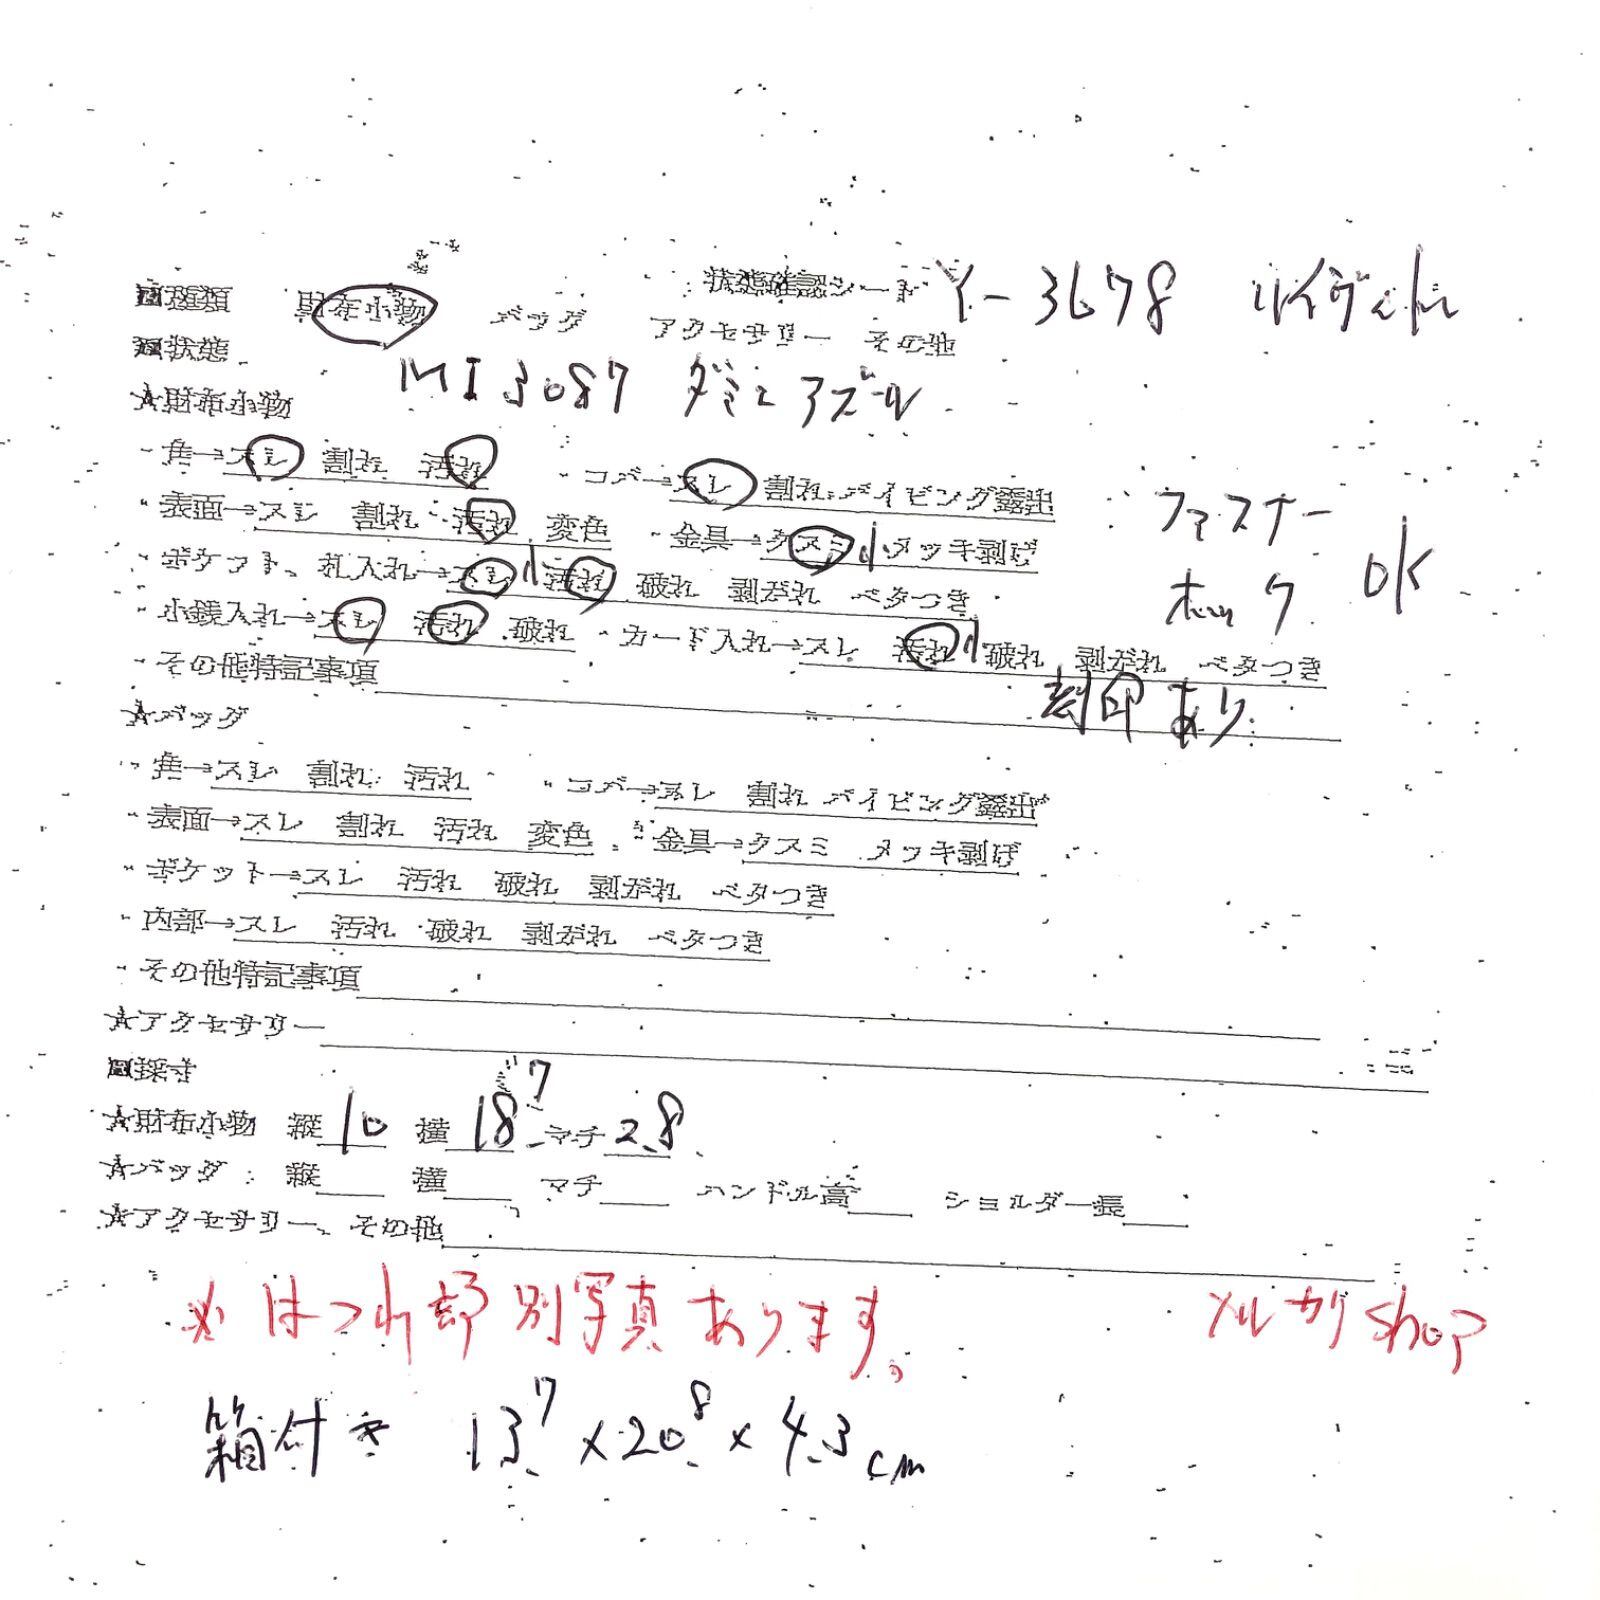 状態確認シート Y-3678 ルイヴィトン
■種類 財布小物 バッグ アクセサリー その他
■状態
MI3087 ダミエアズール
★財布小物
・角→スレ 割れ 汚れ ・コバ→スレ 割れ パイピング露出
・表面→スレ 割れ 汚れ 変色 ・金具→クスミ小 メッキ剥げ
ファスナー
ホック OK
・ポケット、札入れ→スレ小 汚れ 破れ 剥がれ ベタつき
・小銭入れ→スレ 汚れ 破れ ・カード入れ→スレ 汚れ小 破れ 剥がれ ベタつき
・その他特記事項 刻印あり
★バッグ
・角→スレ 割れ 汚れ ・コバ→スレ 割れ パイピング露出
・表面→スレ 割れ 汚れ 変色 ・金具→クスミ メッキ剥げ
・ポケット→スレ 汚れ 破れ 剥がれ ベタつき
・内部→スレ 汚れ 破れ 剥がれ ベタつき
・その他特記事項
★アクセサリー
■採寸
★財布小物 縦10 横18.7 マチ2.8
★バッグ 縦 横 マチ ハンドル高 ショルダー長
★アクセサリー、その他
※ほつれ部別写真あります。 メルカリShop
箱付き 13.7×20.8×4.3cm